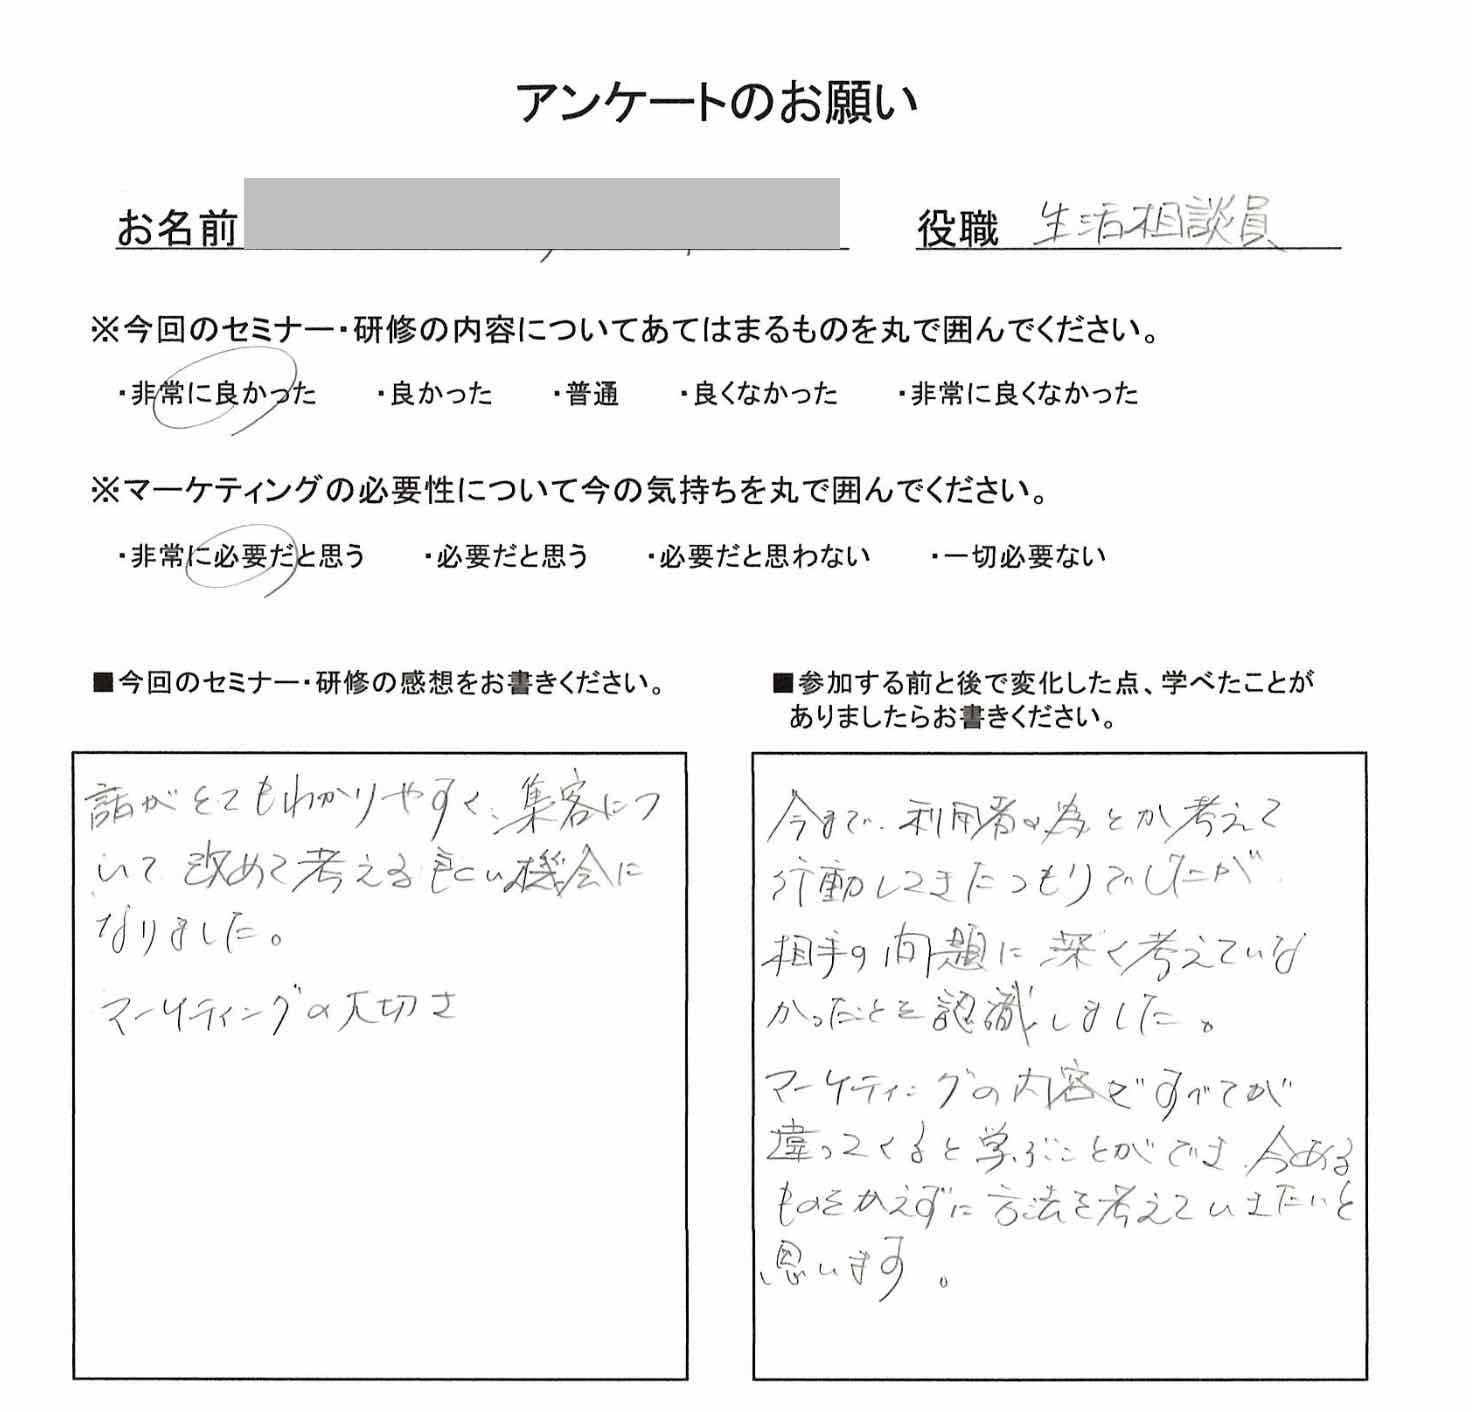 アンケートのお願い
お名前
役職 生活相談員
※今回のセミナー・研修の内容についてあてはまるものを丸で囲んでください。
・非常に良かった ・良かった ・普通 ・良くなかった ・非常に良くなかった
※マーケティングの必要性について今の気持ちを丸で囲んでください。
・非常に必要だと思う ・必要だと思う ・必要だと思わない ・一切必要ない
■今回のセミナー・研修の感想をお書きください。
話がとてもわかりやすく、集客につ
いて改めて考える良い機会に
なりました。
マーケティングの大切さ
■参加する前と後で変化した点、学べたことが
ありましたらお書きください。
今まで、利用者の為とか考えて
行動してきたつもりでしたが
相手の問題に深く考えていな
かったことを認識しました。
マーケティングの内容ですべてが
違ってくると学ぶことができ、今ある
ものをかえずに方法を考えていきたいと
思います。